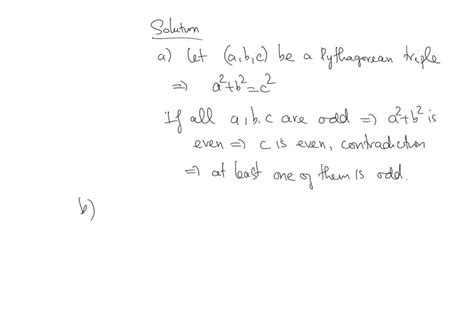 Solution
a) Let (a,b,c) be a Pythagorean triple
⇒ a²+b²=c²
If all a,b,c are odd ⇒ a²+b² is
even ⇒ c is even, contradiction
⇒ at least one of them is odd.
b)